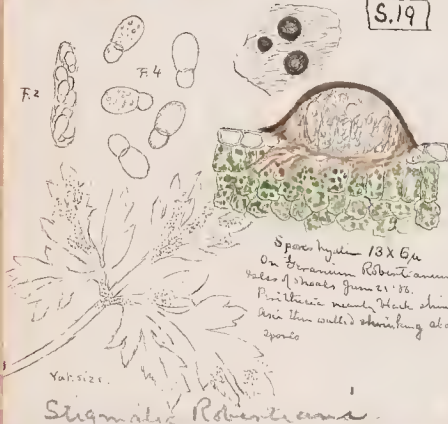 S.19
F.2
F.4
Spores hyalin 13 X 6µ
On Geranium Robertianum
Isles of Shoals June 21 '86.
Perithecia black
Asci thin walled shrinking
spores
Nat. size.
Stigmatea Robertiani.